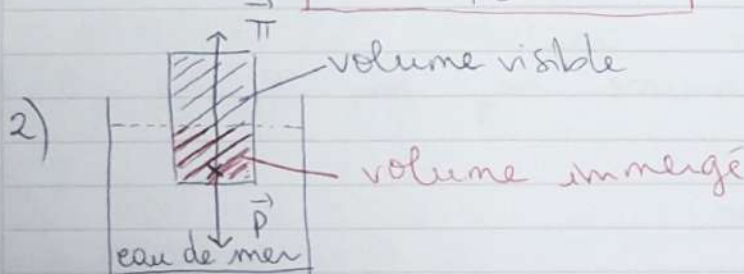 π⃗
volume visible
2)
volume immergé
P⃗
eau de mer